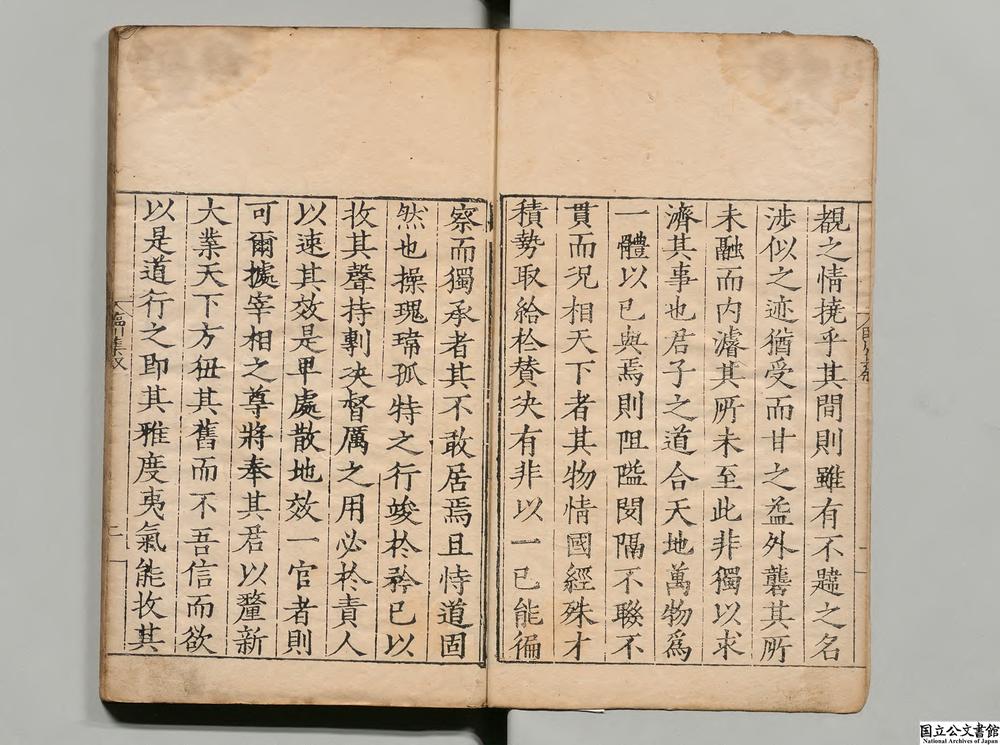 覩之情撓乎其間則雖有不韙之名
涉似之迹猶受而甘之盖外礱其所
未融而内濬其所未至此非獨以求
濟其事也君子之道合天地萬物爲
一體以已與焉則阻隘閡隔不聮不
貫而况相天下者其物情國經殊才
積勢取給於賛决有非以一已能徧
察而獨承者其不敢居焉且恃道固
然也操瑰琦孤特之行竣於矜已以
收其聲持剸决督厲之用必於責人
以速其效是甲處散地效一官者則
可爾據宰相之尊將奉其君以釐新
大業天下方狃其舊而不吾信而欲
以是道行之即其雅度夷氣能收其
臨川集叙
二
國立公文書館
National Archives of Japan